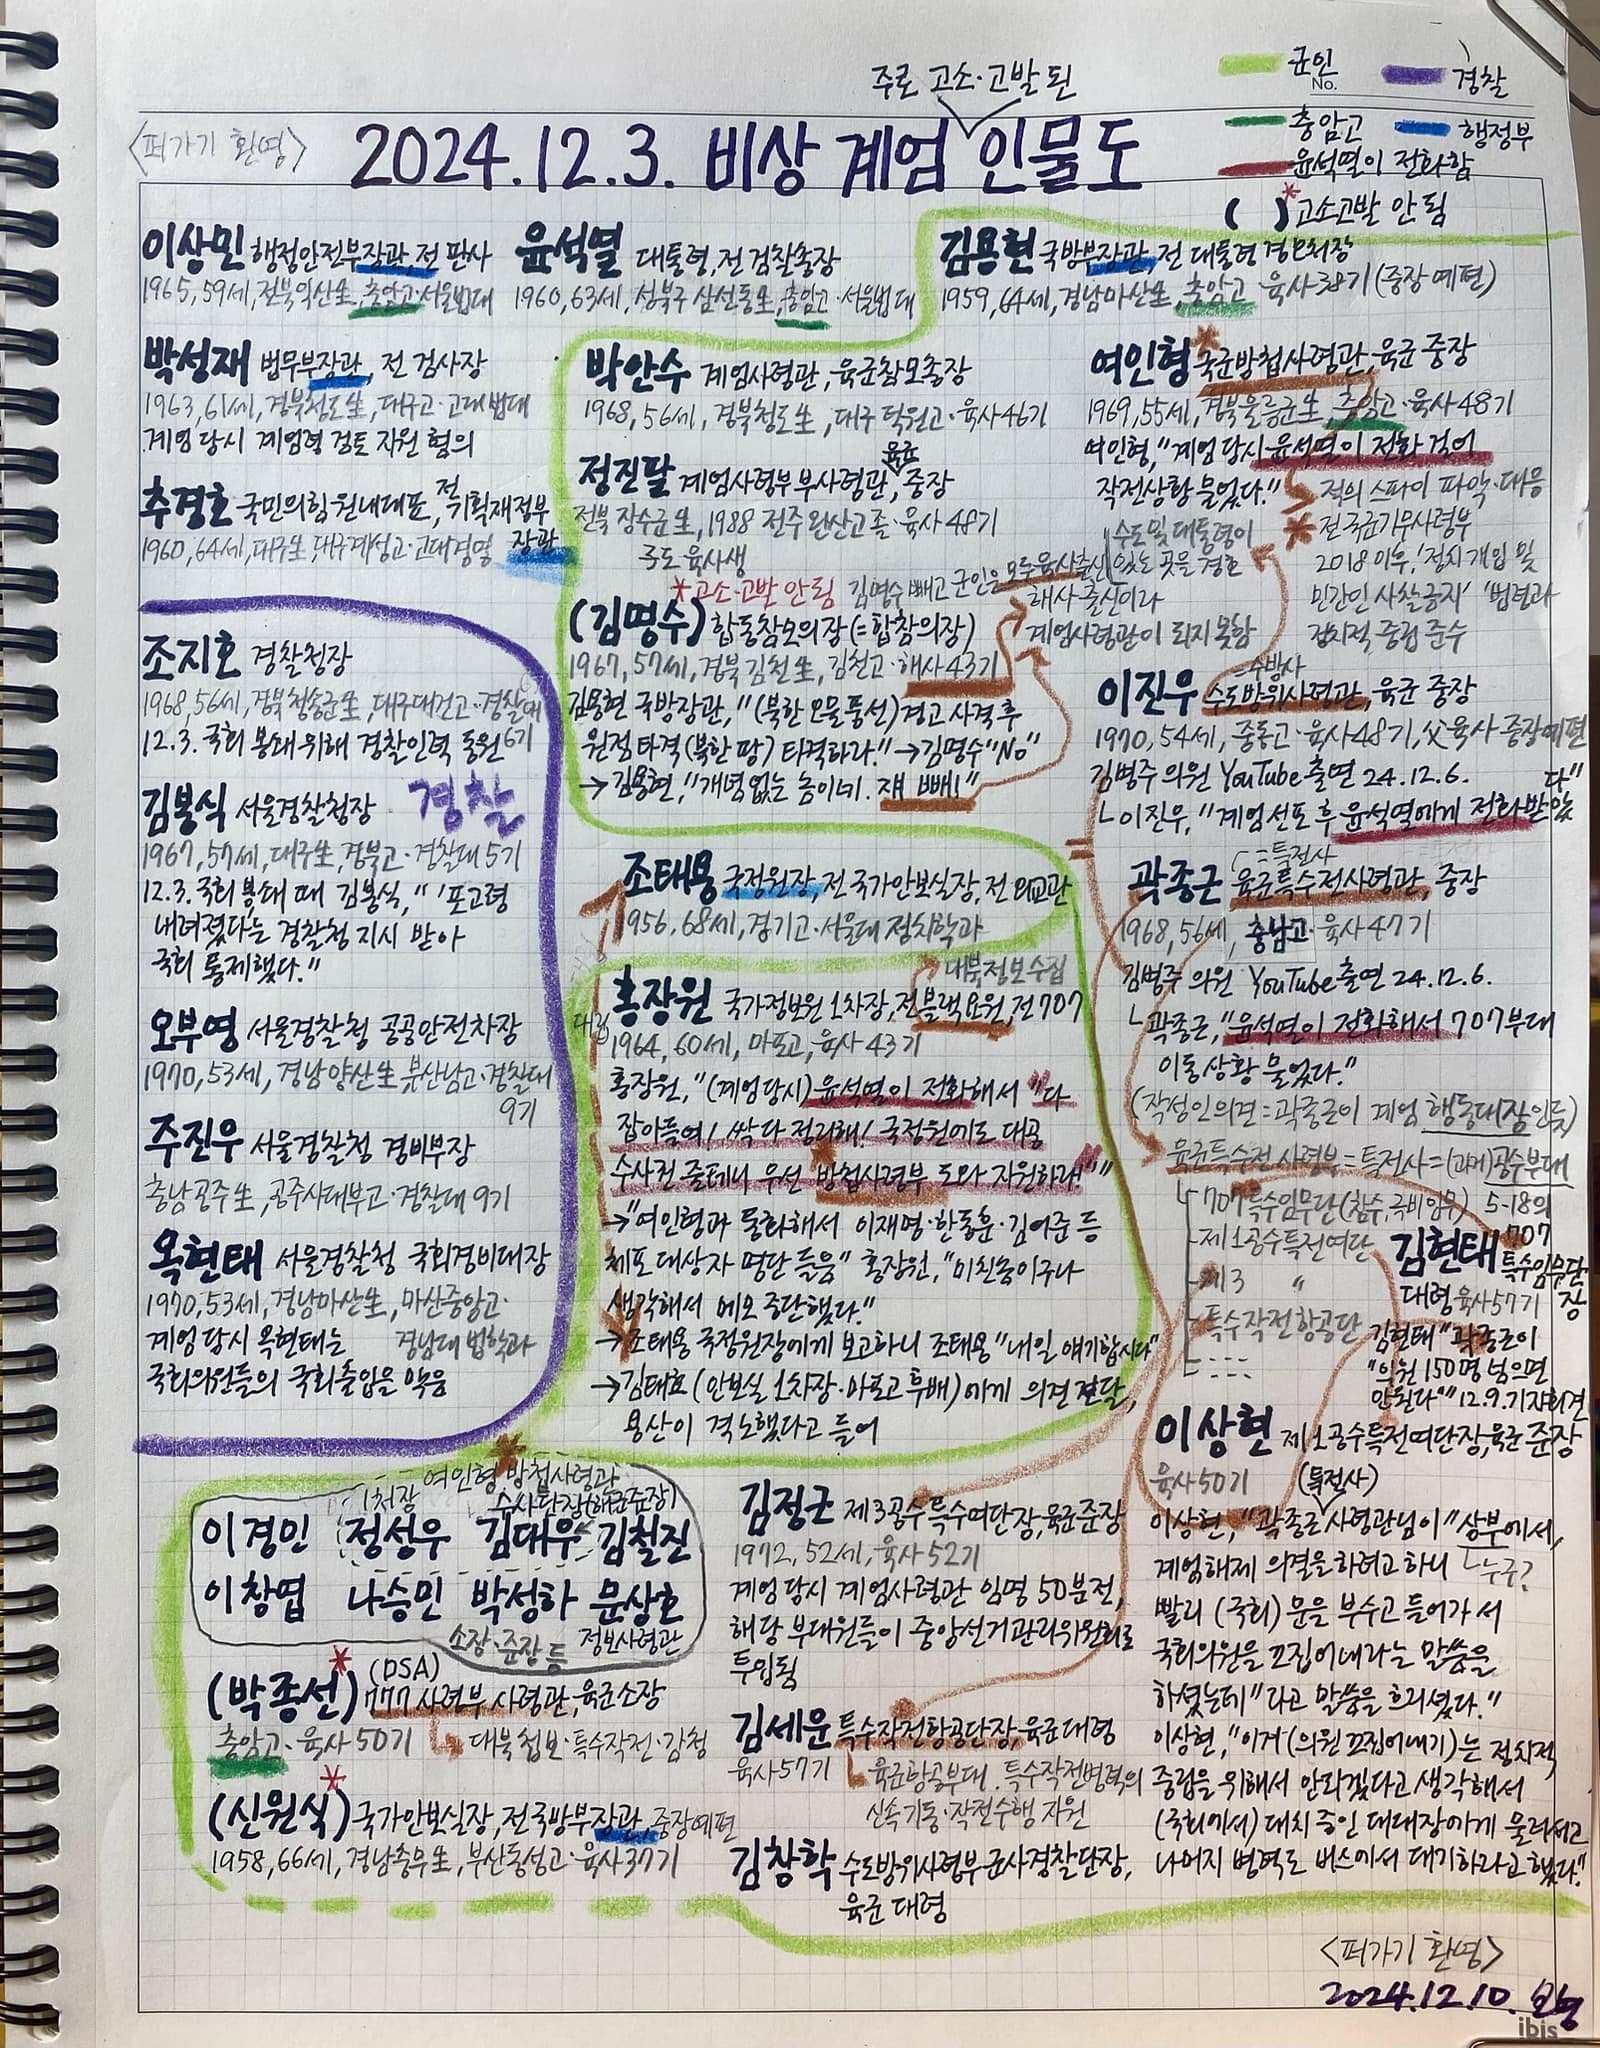 주로 고소·고발된
군인
경찰
No.
충암고
행정부
윤석열이 전화함
( )* 고소고발 안 됨
<퍼가기 환영>
2024.12.3. 비상 계엄 인물도
이상민 행정안전부장관, 전 판사
1965, 59세, 전북익산生, 충암고·서울법대
윤석열 대통령, 전 검찰총장
1960, 63세, 성북구 삼선동生, 충암고·서울법대
김용현 국방부장관, 전 대통령 경호처장
1959, 64세, 경남마산生, 충암고·육사38기 (중장예편)
박성재 법무부장관, 전 검사장
1963, 61세, 경북청도生, 대구고·고대법대
계엄 당시 계엄력 검토 지원 혐의
추경호 국민의힘 원내대표, 전 기획재정부
장관
1960, 64세, 대구生, 대구계성고·고대경영
조지호 경찰청장
1968, 56세, 경북청송군生, 대구대건고·경찰대
6기
12.3. 국회 봉쇄 위해 경찰인력 동원
김봉식 서울경찰청장
경찰
1967, 57세, 대구生, 경북고·경찰대 5기
12.3. 국회 봉쇄 때 김봉식, "'포고령
내려졌다'는 경찰청 지시 받아
국회 통제했다."
오부명 서울경찰청 공공안전차장
1970, 53세, 경남양산生, 부산남고·경찰대
9기
주진우 서울경찰청 경비부장
충남공주生, 공주사대부고·경찰대 9기
목현태 서울경찰청 국회경비대장
1970, 53세, 경남마산生, 마산중앙고·
경남대 법학과
계엄 당시 목현태는
국회의원들의 국회출입을 막음
박안수 계엄사령관, 육군참모총장
1968, 56세, 경북청도生, 대구 덕원고·육사46기
정진팔 계엄사령부 부사령관, 육군 중장
전북 장수군生, 1988 전주완산고 졸·육사48기
주도 육사생
*고소·고발 안 됨
김명수 빼고 군인은 모두 육사출신
해사 출신이라
계엄사령관이 되지 못함
(김명수) 합동참모의장(=합참의장)
1967, 57세, 경북 김천生, 김천고·해사43기
김용현 국방장관, "(북한 오물풍선) 경고 사격 후
원점타격(북한 땅) 타격하라." → 김명수 "No"
→ 김용현, "개념없는 놈이네. 쟤 빼!"
여인형 국군방첩사령관, 육군 중장
1969, 55세, 경북울릉군生, 충암고·육사48기
여인형, "계엄 당시 윤석열이 전화 걸어
작전상황 물었다."
적의 스파이 파악·대응
전 국군기무사령부
2018 이후, '정치개입 및
민간인 사찰금지' '법령과
정치적 중립 준수
수도 및 대통령이
있는 곳을 경호
=수방사
이진우 수도방위사령관, 육군 중장
1970, 54세, 중동고·육사48기, 父육사·중장예편
김병주 의원 YouTube 출연 24.12.6.
ㄴ이진우, "계엄선포 후 윤석열에게 전화받았
다"
=특전사
곽종근 육군특수전사령관, 중장
1968, 56세, 충남고·육사47기
김병주 의원 YouTube 출연 24.12.6.
ㄴ곽종근, "윤석열이 전화해서 707부대
이동상황 물었다."
(작성인의견=곽종근이 계엄 행동대장인듯)
육군특수전 사령부=특전사=(과거)공수부대
5·18의
707특수임무단(참수, 국비임무)
제1공수특전여단
제3 〃
특수작전항공단
- - - -
김현태 707
특수임무단
장
대령 육사57기
김현태 "곽종근이
"의원 150명 넘으면
안된다"" 12.9. 기자회견
조태용 국정원장, 전 국가안보실장, 전 외교관
1956, 68세, 경기고·서울대 정치학과
대북정보수집
홍장원 국가정보원 1차장, 전 블랙요원, 전 707
1964, 60세, 마포고, 육사43기
홍장원, "(계엄당시) 윤석열이 전화해서 "다
잡아들여! 싹 다 정리해! 국정원에도 대공
수사권 줄테니 우선 방첩사령부 도와 지원하라""
→"여인형과 통화해서 이재명·한동훈·김어준 등
체포 대상자 명단 들음" 홍장원, "미친놈이구나
생각해서 메모 중단했다."
→조태용 국정원장에게 보고하니 조태용 "내일 얘기합시다"
→김태효(안보실 1차장·마포고 후배)에게 의견 전달,
용산이 격노했다고 들어
이상현 제1공수특전여단장, 육군 준장
육사50기
(특전사)
이상현, "곽종근사령관님이 "상부에서,
ㄴ누구?
계엄해제 의결을 하려고 하니
빨리 (국회) 문을 부수고 들어가서
국회의원을 끄집어내라는 말씀을
하셨는데"라고 말씀을 흐리셨다."
이상현, "이거(의원 끄집어내기)는 정치적
중립을 위해서 안되겠다고 생각해서
(국회에서) 대치 중인 대대장에게 물러서고
나머지 병력도 버스에서 대기하라고 했다."
여인형 방첩사령관
1처장
수사단장(해군준장)
이경민 정성우 김대우 김철진
이창엽 나승민 박성하 문상호
소장·준장 등
정보사령관
(박종선)* (DSA) 777사령부 사령관, 육군소장
충암고·육사50기
대북첩보·특수작전·감청
(신원식)* 국가안보실장, 전국방부장관, 중장예편
1958, 66세, 경남충무生, 부산동성고·육사37기
김정근 제3공수특수여단장, 육군준장
1972, 52세, 육사52기
계엄당시 계엄사령관 임명 50분전,
해당 부대원들이 중앙선거관리위원회로
투입됨
김세운 특수작전항공단장, 육군대령
육사57기
육군항공부대. 특수작전병력의
신속기동·작전수행 지원
김창학 수도방위사령부 군사경찰단장,
육군 대령
<퍼가기 환영>
2024.12.10.
ibis